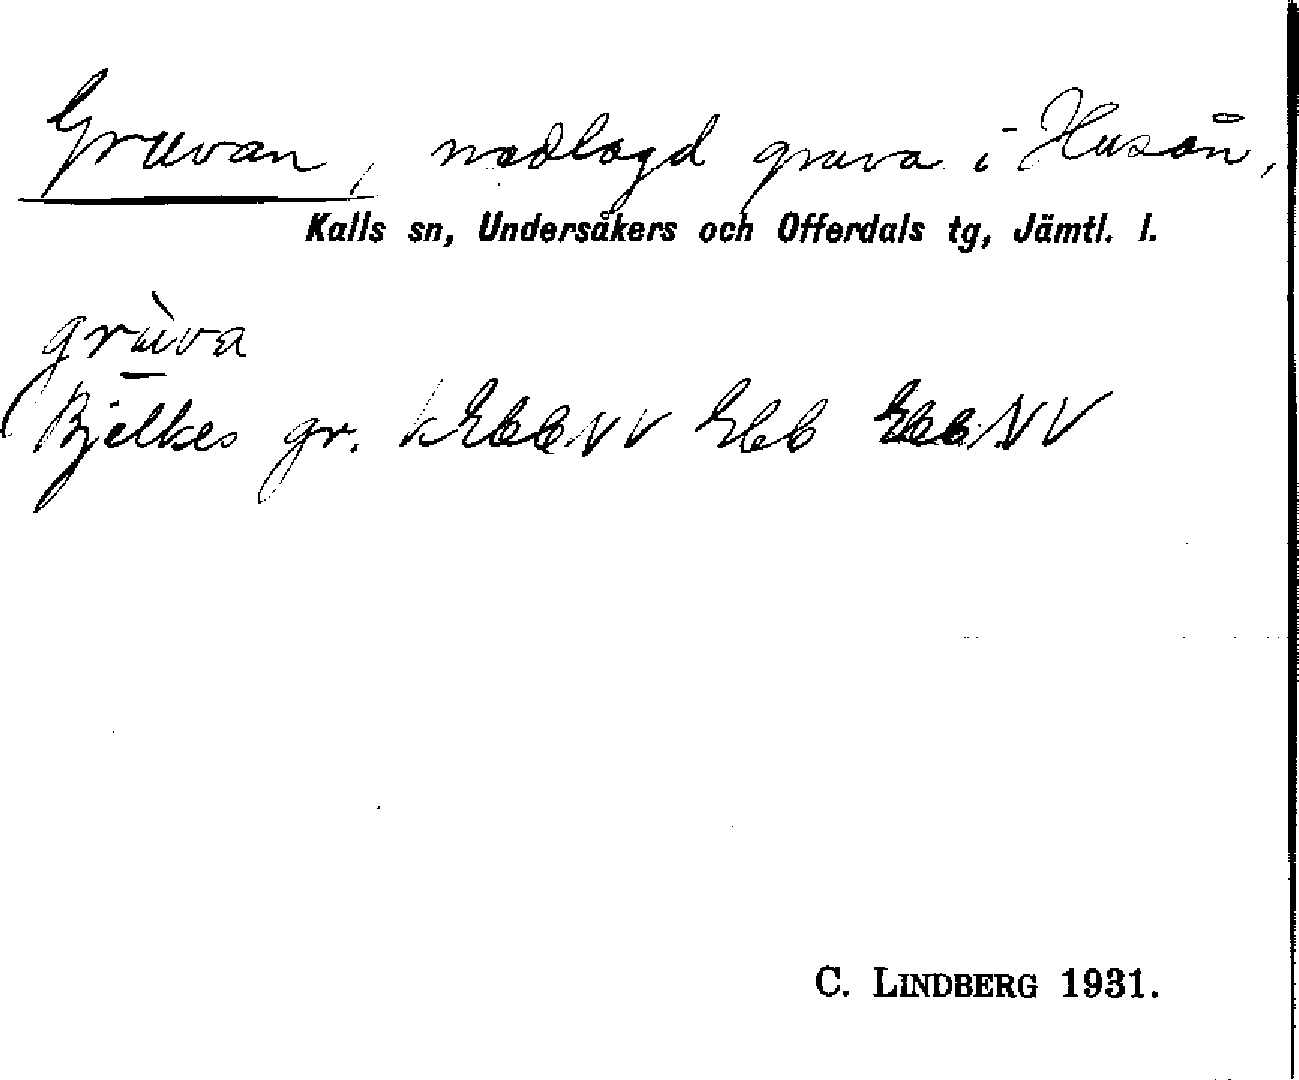 Gruvan, nedlagd gruva i Huså̄n,
Kalls sn, Undersåkers och Offerdals tg, Jämtl. l.
grùva
(Bjelkes gr.
C. LINDBERG 1931.